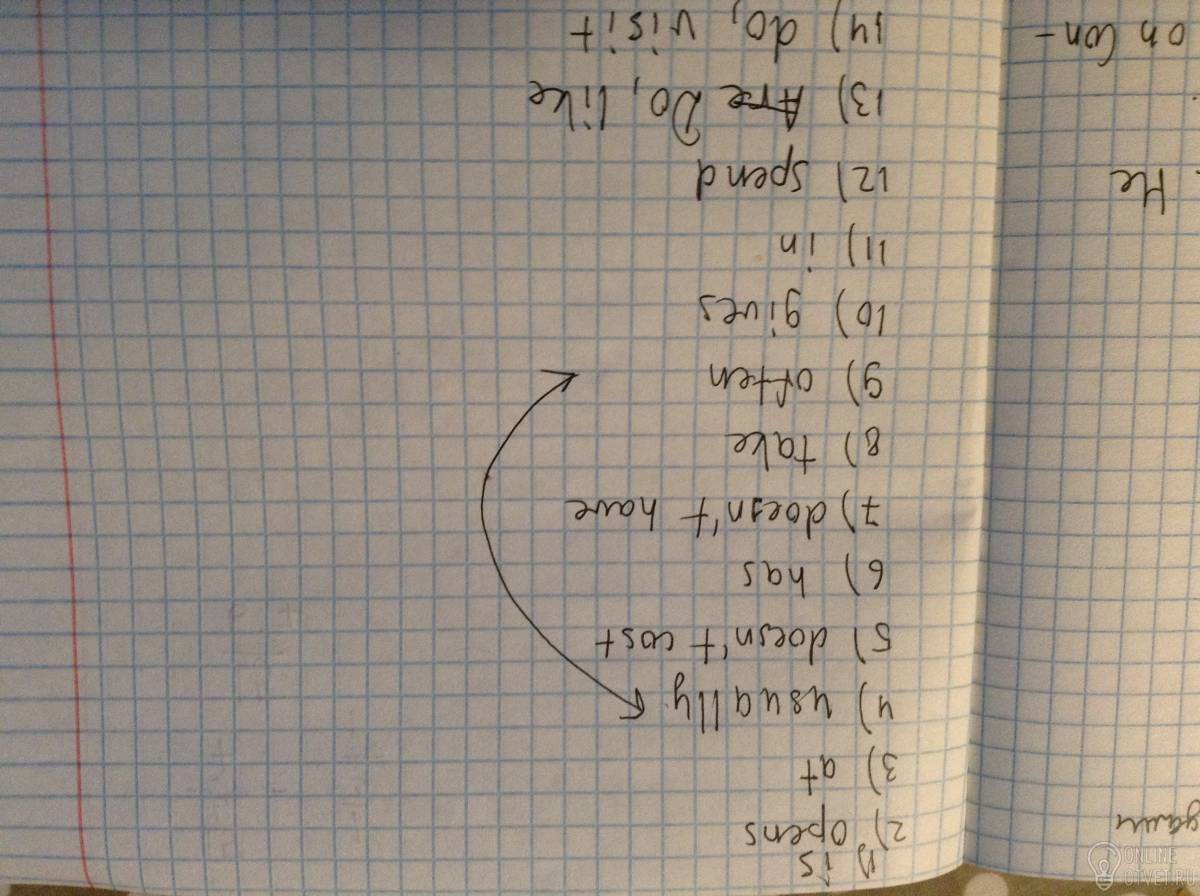 1) is
2) opens
3) at
4) usually
5) doesn't cost
6) has
7) doesn't have
8) take
9) often
10) gives
11) in
12) spend
13) Are Do, like
14) do, visit
on Con-
ONLINE
OTVET.RU